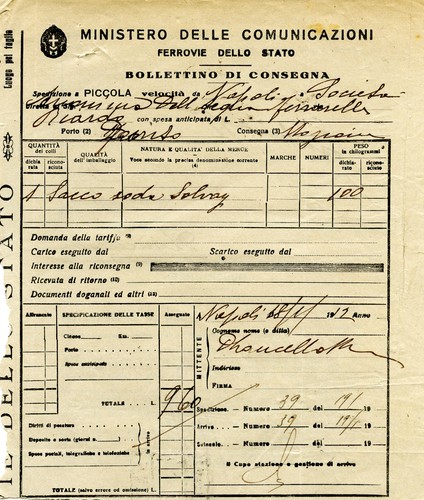 MINISTERO DELLE COMUNICAZIONI
FERROVIE DELLO STATO
BOLLETTINO DI CONSEGNA
Luogo pel taglio
Spedizione a PICCOLA velocità da Napoli a Società
Ferrarelle
Riardo con spesa anticipata di L.
Porto (2) Consegna (3)
QUANTITÀ dei colli
dichiarata riconosciuta
QUALITÀ dell'imballaggio
NATURA E QUALITÀ DELLA MERCE
Voce secondo la precisa denominazione corrente (4)
MARCHE
NUMERI
PESO in chilogrammi
dichiarato riconosciuto
1 Sacco soda Solvay 100
Domanda della tariffa
Carico eseguito dal Scarico eseguito dal
Interesse alla riconsegna (9)
Ricevuta di ritorno (12)
Documenti doganali ed altri (13)
Affrancato SPECIFICAZIONE DELLE TASSE Assegnato
Napoli 18/1/1912 Anno
Cognome nome (e ditta)
MITTENTE
Indirizzo
FIRMA
Porto
Spese anticipate
TOTALE 960
Diritti di pesatura
Deposito e sosta (giorni n. )
Spese postali, telegrafiche e telefoniche
in arrivo
TOTALE (salvo errore ed omissione) L.
Spedizione. - Numero 39 del 19/1 19
Arrivo - Numero 39 del 19/1 19
Svincolo - Numero del 19
Il Capo stazione o gestione di arrivo
IE DELLO STATO